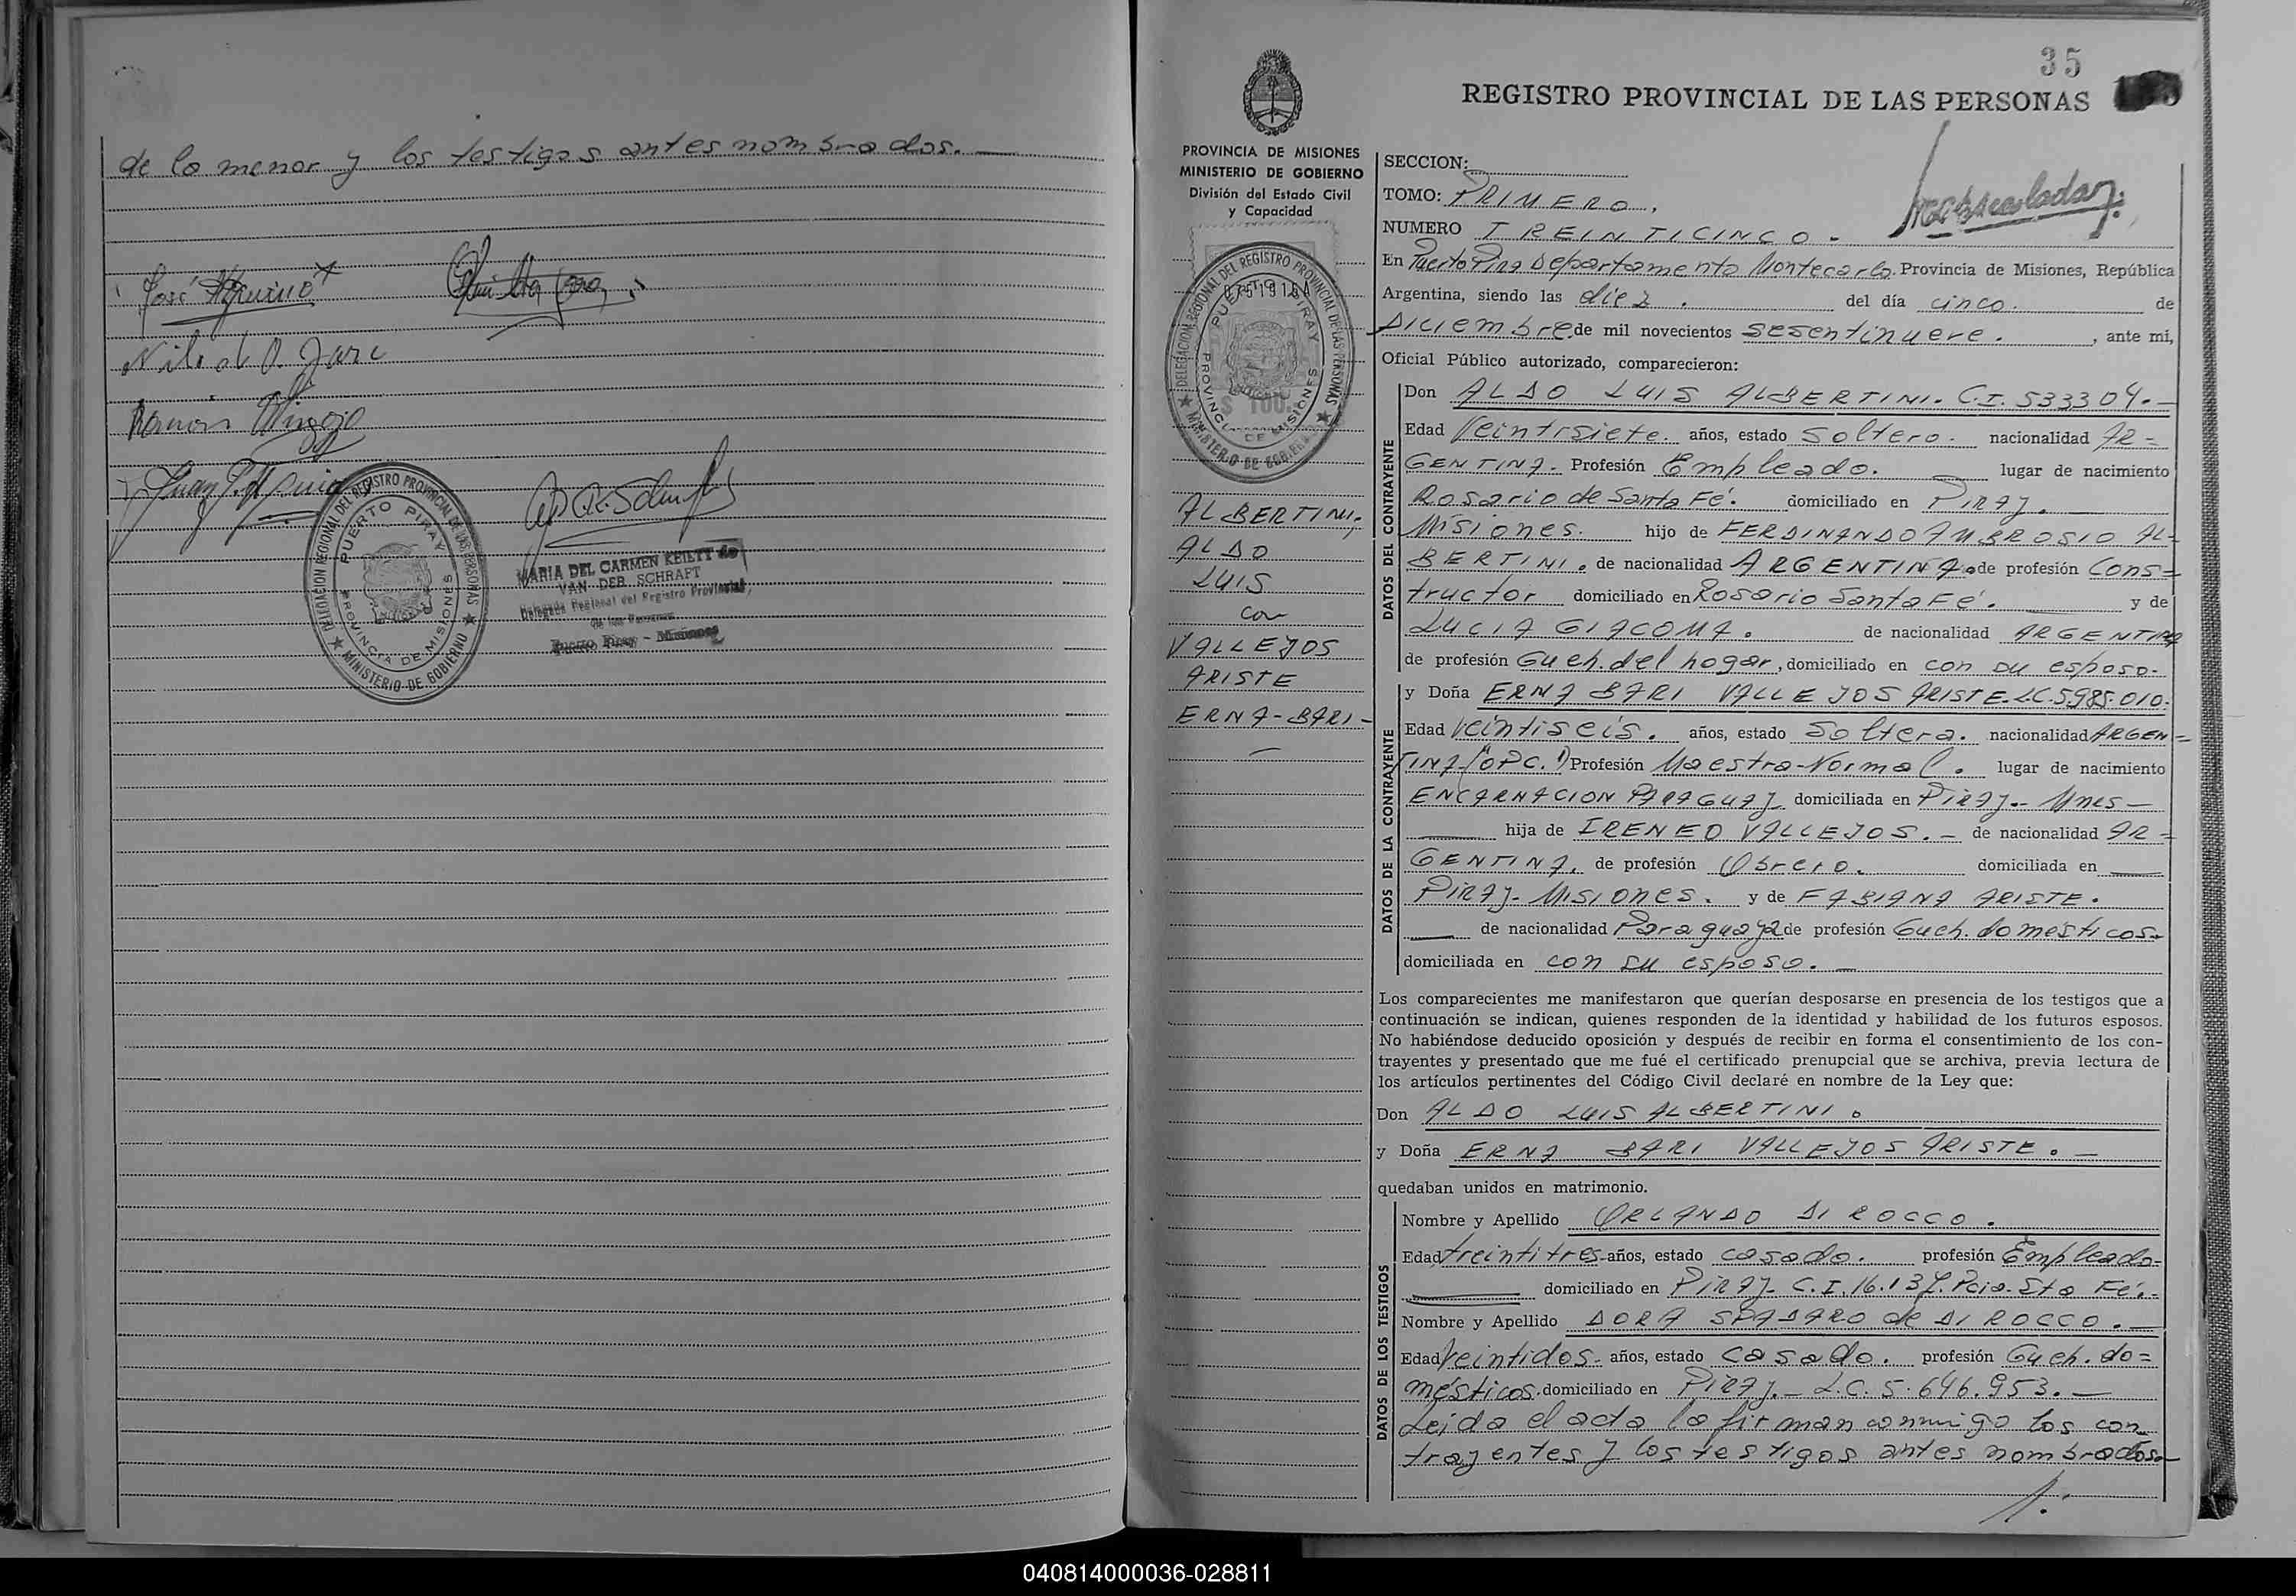 de la menor y los testigos antes nombrados.
José Aquino
Nilo de A. Jara
Ramón
DELEGACION REGIONAL DEL REGISTRO PROVINCIAL DE LAS PERSONAS
PUERTO PIRAY
PROVINCIA DE MISIONES
MINISTERIO DE GOBIERNO
MARIA DEL CARMEN KEILTY de
VAN DER SCHRAFT
Delegada Regional del Registro Provincial
de las Personas
Puerto Piray - Misiones
35
REGISTRO PROVINCIAL DE LAS PERSONAS
PROVINCIA DE MISIONES
MINISTERIO DE GOBIERNO
División del Estado Civil
y Capacidad
DELEGACION REGIONAL DEL REGISTRO PROVINCIAL DE LAS PERSONAS
PUERTO PIRAY
PROVINCIA DE MISIONES
MINISTERIO DE GOBIERNO
$ 100
ALBERTINI,
ALDO
LUIS
con
VALLEJOS
ARISTE
ERNA-BARI-
SECCION:
TOMO: PRIMERO.
NUMERO TREINTICINCO.-
En Puerto Piray Departamento Montecarlo. Provincia de Misiones, República
Argentina, siendo las diez. del día cinco. de
Diciembre de mil novecientos sesentinueve. , ante mi,
Oficial Público autorizado, comparecieron:
DATOS DEL CONTRAYENTE
Don ALDO LUIS ALBERTINI. C.I. 533304.-
Edad Veintisiete. años, estado soltero. nacionalidad AR=
GENTINA. Profesión Empleado. lugar de nacimiento
Rosario de Santa Fé. domiciliado en PIRAY.
MISIONES. hijo de FERDINANDO AMBROSIO AL-
BERTINI. de nacionalidad ARGENTINA. de profesión Cons=
tructor domiciliado en Rosario Santa Fé. y de
LUCIA GIACOMA. de nacionalidad ARGENTINA
de profesión Queh. del hogar, domiciliado en con su esposo.-
DATOS DE LA CONTRAYENTE
y Doña ERNA BARI VALLEJOS ARISTE.-L.C.5.985.010.
Edad Veintiseis. años, estado Soltera. nacionalidad ARGEN=
TINA-("OPC.") Profesión Maestra-Normal. lugar de nacimiento
ENCARNACION PARAGUAY domiciliada en PIRAY.- Mnes-
hija de IRENEO VALLEJOS.- de nacionalidad AR=
GENTINA. de profesión Obrero. domiciliada en
PIRAY- MISIONES. y de FABIANA ARISTE.
de nacionalidad Paraguaya de profesión Queh. domésticos.
domiciliada en con su esposo.-
Los comparecientes me manifestaron que querían desposarse en presencia de los testigos que a
continuación se indican, quienes responden de la identidad y habilidad de los futuros esposos.
No habiéndose deducido oposición y después de recibir en forma el consentimiento de los con-
trayentes y presentado que me fué el certificado prenupcial que se archiva, previa lectura de
los artículos pertinentes del Código Civil declaré en nombre de la Ley que:
Don ALDO LUIS ALBERTINI.
y Doña ERNA BARI VALLEJOS ARISTE.-
quedaban unidos en matrimonio.
DATOS DE LOS TESTIGOS
Nombre y Apellido ORLANDO DI ROCCO.
Edad treintitres años, estado casado. profesión Empleado-
domiciliado en PIRAY- C.I. 16.137. Pcia. Sta Fé.-
Nombre y Apellido DORA SPADARO de DI ROCCO.-
Edad Veintidos- años, estado casado. profesión Queh. do=
mésticos. domiciliado en PIRAY.- L.C. 5.646.953.-
Leida el acta la firman conmigo los con-
trayentes y los testigos antes nombrados.-
040814000036-028811